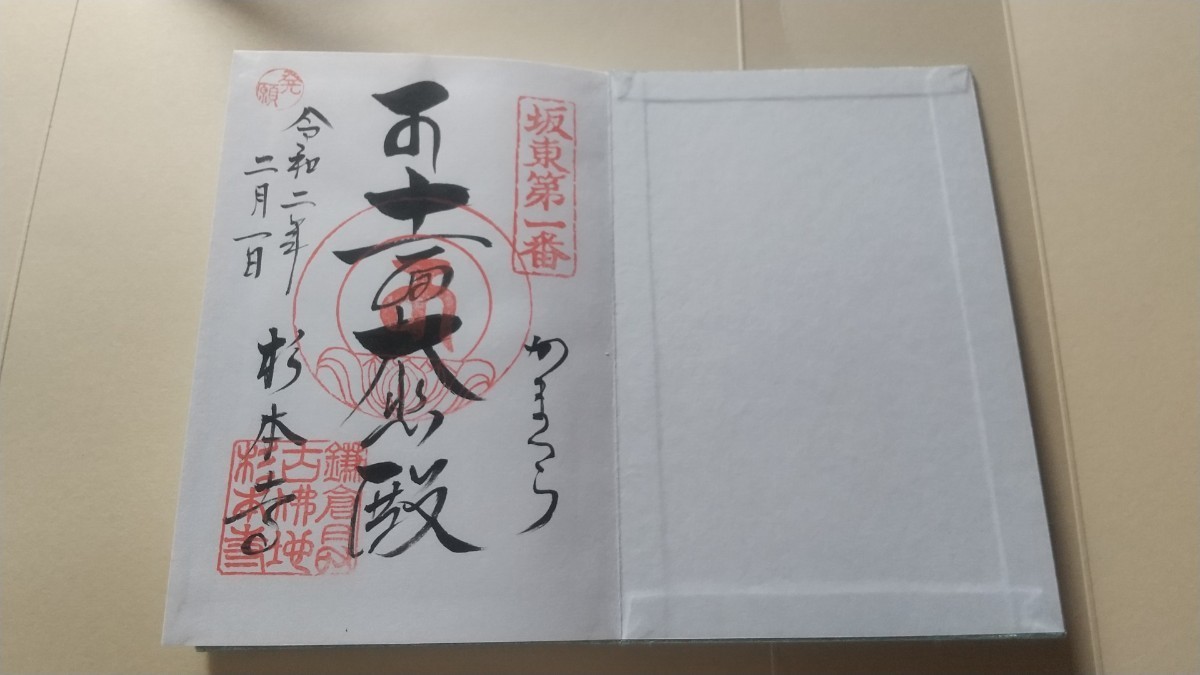 坂東第一番
かまくら
十一面大悲殿
令和二年
二月一日
発願
杉本寺
鎌倉最
古佛地
杉本寺